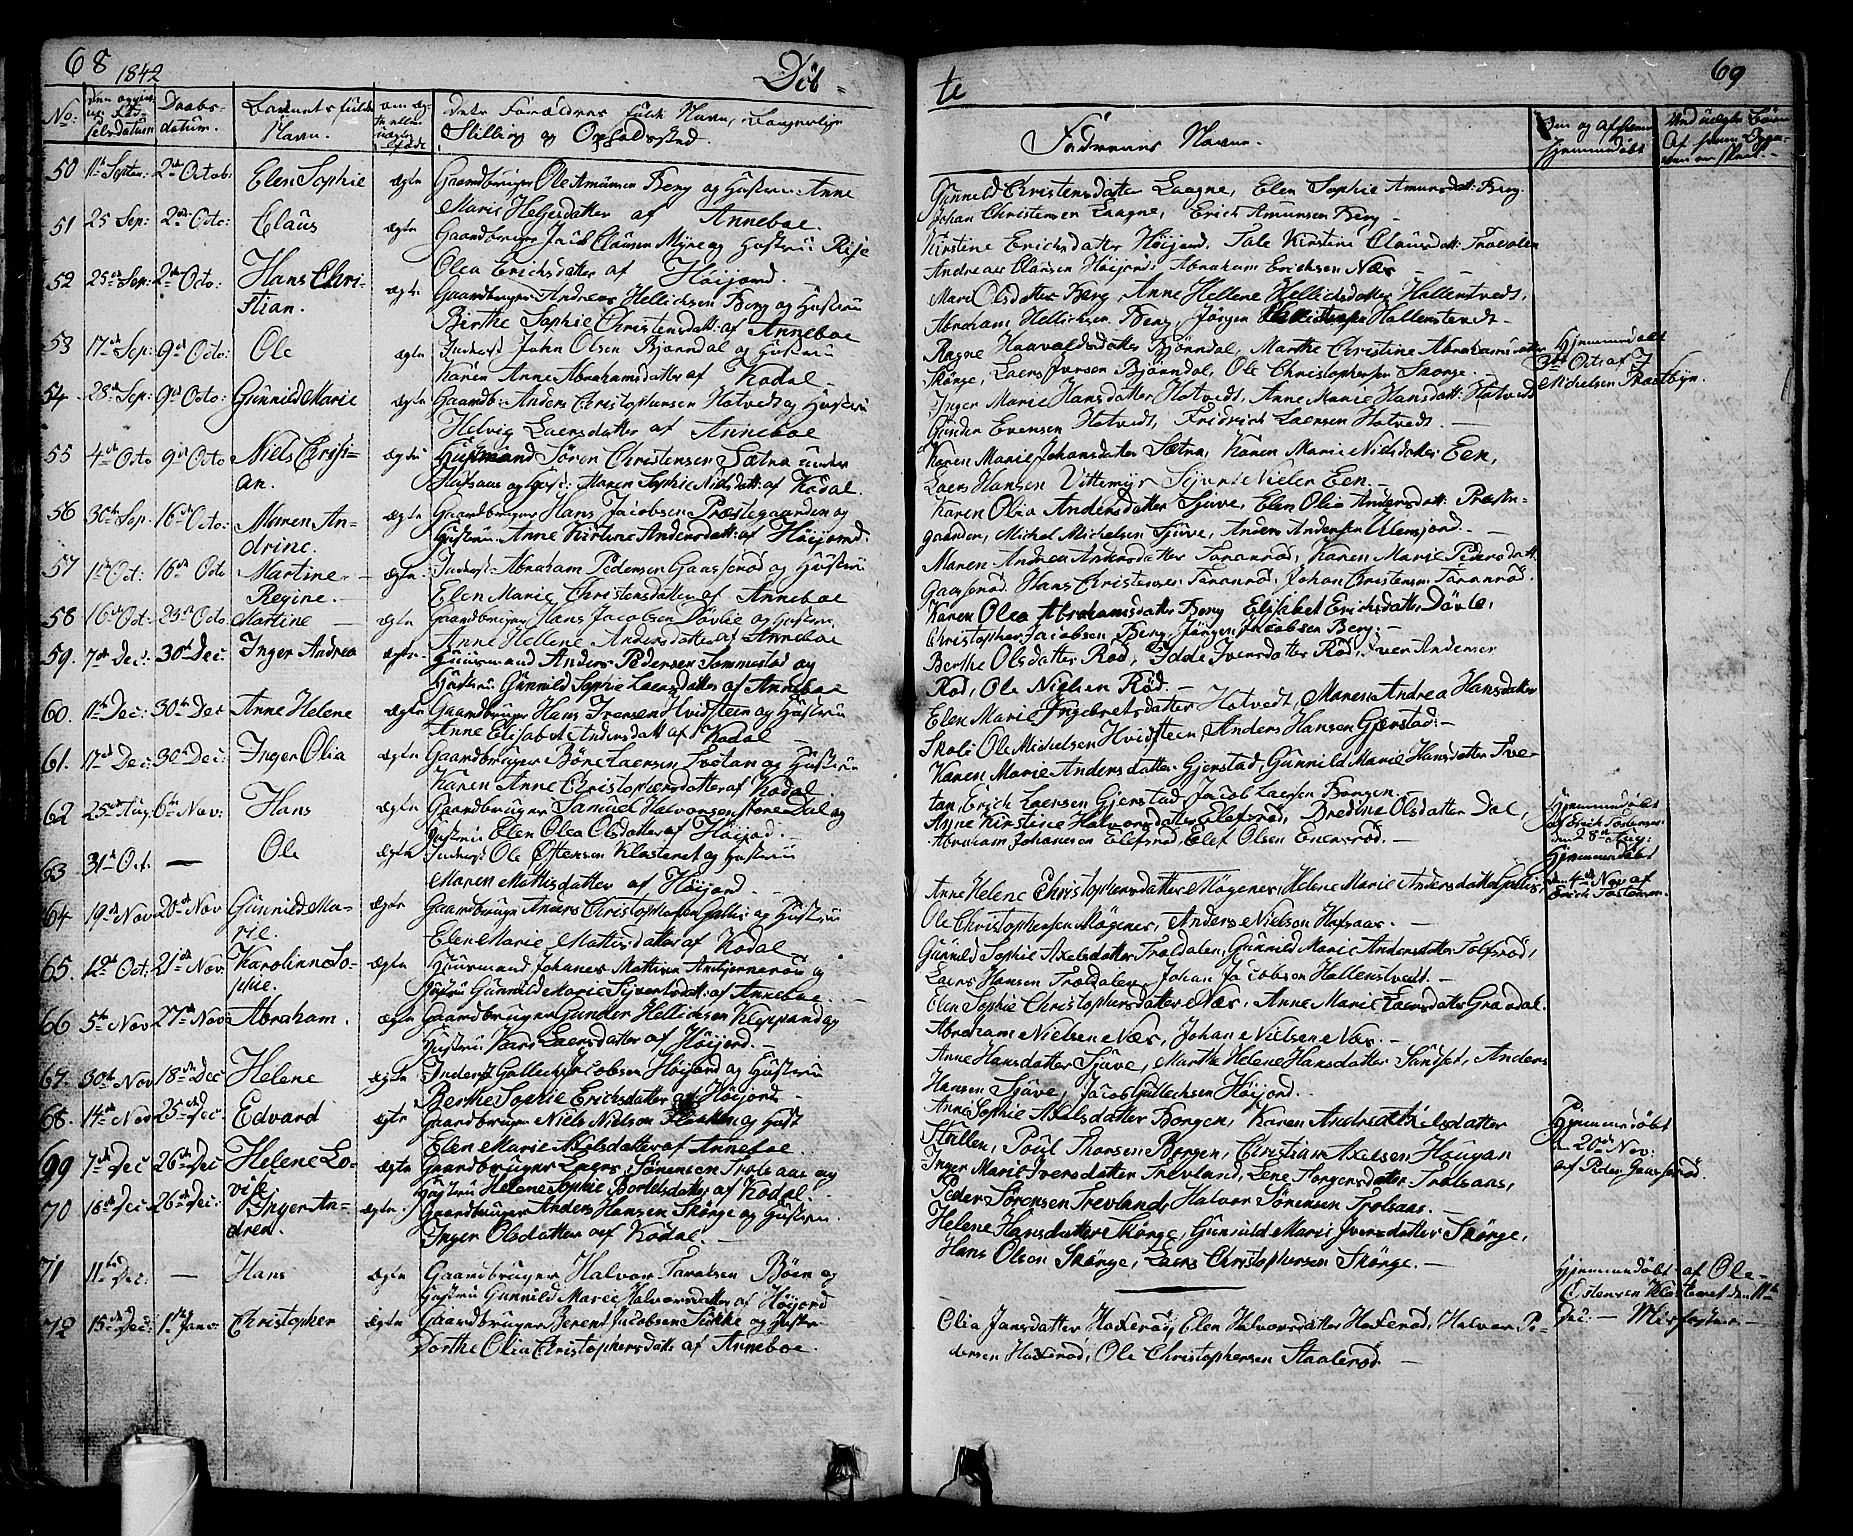 68 1842 Döb-
No. Daabs- Barnets fulde
datum. Navn. Stilling og Opholdssted.
50 11te Septer: 2den Octob: Elen Sophie ægte Gaardbruger Ole Amunsen Berg og Hustrue Anne
Marie Helgesdatter af Anneboe.
51 25 Sep: 2den Octo: Claus ægte Gaardbruger Jacob Clausen Myre og Hustrue
Olea Erichsdatter af Höijord.
52 25de Sep: 2den Octo: Hans Chri- ægte Gaardbruger Andreas Hellichsen Berg og Hustrue
stian. Birthe Sophie Christensdatt: af Anneboe
53 17de Sep: 9de Octo: Ole ægte Inderst John Olsen Bjørndal og Hustrue
Karen Anne Abrahamsdatter af Kodal
54 28de Sep: 9de Octo: Gunnild Marie ægte Gaardb: Anders Christophersen Hotvedt og Hustrue
Helvig Laersdatter af Anneboe
55 4de Octo 9de Octo Niels Christi- ægte Huusmand Sören Christensen Sætra under
an. Hafsaas og Hust: Maren Sophie Nielsdatt: af Kodal.
56 30te Sep: 16de Octo: Maren An- ægte Gaardbruger Hans Jacobsen Præstegaarden og
drine. Hustrue Anne Kirstine Andersdatt: af Höijord.
57 1te Oct: 16de Octo Martine ægte Inderst Abraham Pedersen Gaasserød og Hustrue
Regine. Elen Marie Christensdatter af Anneboe
58 16de Oct: 23de Octo Martine ægte Gaardbruger Hans Jacobsen Dövlie og Hustrue
Anne Hellene Andersdatter af Anneboe
59. 7de Dec: 30te Dec: Inger Andrea ægte Huusmand Anders Pedersen Sommestad og
Hustrue Gunnild Sophie Laersdatter af Anneboe
60. 11te Dec: 30te Dec Anne Helene ægte Gaardbruger Hans Ivensen Hvidsteen og Hustrue
Anne Elisabet Andersdatt: af Kodal
61. 17de Dec: 30te Dec: Inger Olia ægte Gaardbruger Børe Laersen Svetan og Hustrue
Karen Anne Christophersdatter af Kodal
62 25de Aug: 6te Nov: Hans ægte Gaardbruger Samuel Halvorsen store Dal og
Hustrue Elen Olea Olsdatter af Höijord.
63 31te Oct. — Ole ægte Inderst Ole Østensen Klosteret og Hustrue
Maren Mattisdatter af Höijord.
64 19de Nov 20de Nov Gunnild Ma- ægte Gaardbruger Anders Christophersen Gallis og Hustrue
rie. Elen Marie Mattisdatter af Kodal
65. 12de Oct: 21de Nov: Karolinne So- ægte Huusmand Johanes Mattisen og
phie. Hustrue Gunnild Marie Sivertsdatt: af Anneboe.
66 5te Nov 27de Nov Abraham. ægte Gaardbruger Gunder Hellichsen Kleppan og
Hustrue Kari Laersdatter af Höijord.
67. 30te Nov 18de Dec Helene ægte Inderst Gullich Jacobsen Höijord og Hustrue
Berthe Sophie Erichsdatter af Höijord
68. 14de Nov 25de Dec: Edvard ægte Gaardbruger Niels Nielsen og Hust
Elen Marie Nielsdatter af Anneboe.
99 7de Dec 26de Dec Helene Lo- ægte Gaardbruger Laers Sörensen Trolsaas og
vise. Hustrue Helene Sophie Bordelsdatter af Kodal.
70 16de Dec 26de Dec: Inger An- ægte Gaardbruger Anders Hansen Skörge og Hustrue
drea. Inger Olsdatter af Kodal.
71 11te Dec: — Hans ægte Gaardbruger Halvor Taralsen Böen og
Hustrue Gunnild Marie Halvorsdatter af Höijord
72 15de Dec: 1te Janu: Christopher ægte Gaardbruger Berent Jacobsen og Hustrue
Dorthe Olia Christophersdatt: af Anneboe.
te 69
Faddernes Navne.
Gunnild Christensdatter Laagne, Elen Sophie Amunsdatt: Berg.
Johan Christensen Laagne, Erich Amunsen Berg —
Kirstine Erichsdatter Höijord. Tale Kirstine Clausdatt: Trævolen
Andreas Clausen Höijord. Abraham Erichsen Næs —
Mari Olsdatter Berg, Anne Hellene Hellichsdatter Hallenstvedt.
Abraham Hellichsen Berg, Jörgen Hallenstvedt —
Ragne Haavaldsdatter Bjørndal, Marthe Christine Abrahamsdatter Hjemmedøbt
Skörge, Laers Iversen Bjørndal, Ole Christophersen Skörge. 3de Oct: af J
Inger Marie Hansdatter Hotvedt, Anne Marie Hansdatt: Hotvedt Michelsen Prestbyn.
Gunder Evensen Hotvedt, Fridrich Laersen Hotvedt. —
Karen Marie Johansdatter Sætra, Karen Marie Nielsdatter Een,
Laers Hansen Vittemyr Een. —
Karen Olia Andersdatter Sjuve, Elen Olia Andersdatt: Præste-
gaarden, Michel Michelsen Sjuve, Anders Andersen Ulensjord. —
Maren Andrea Andersdatter Taranröd, Karen Marie Pedersdatt:
Gaasserød. Hans Christensen Taranröd, Johan Christensen Taranröd.
Karen Olea Abrahamsdatter Berg Elisabet Erichsdatter Dövle,
Christopher Jacobsen Berg, Jörgen Jacobsen Berg: —
Berthe Olsdatter Röd, Idde Iversdatter Röd, Iver Andersen
Röd, Ole Nielsen Röd. —
Elen Marie Ingebretsdatter Hotvedt, Maren Andrea Hansdatter
Skoli Ole Michelsen Hvidsteen, Anders Hansen Gjerstad: —
Karen Marie Andersdatter Gjerstad, Gunnild Marie Hansdatter Sve-
tan, Erich Laersen Gjerstad, Jacob Laersen Borgen. —
Anne Kirstine Halvorsdatter Elefsröd, Bredine Olsdatter Dal, Hjemmedøbt
Abraham Johannesen Elefsröd, Elef Olsen — af Erich
den 28de Aug:
Hjemmedøbt
Anne Helene Christophersdatter Møgenes, Helene Marie Andersdatter Gallis, den 4de Nov af
Ole Christophersen Møgenes, Anders Nielsen Hafsaas. — Erich
Gunnild Sophie Axelsdatter Troldalen, Gunnild Marie Andersdatter Tolfsröd,
Laers Hansen Troldalen, Johan Jacobsen Hallenstvedt. —
Elen Sophie Christophersdatter Næs, Anne Marie Laersdatter Gravdal.
Abraham Nielsen Næs, Johan Nielsen Næs. —
Anne Hansdatter Sjuve, Marthe Helene Hansdatter Sundset, Anders
Hansen Sjuve, Jacob Gullichsen Höijord. —
Anne Sophie Axelsdatter Borgen, Karen Andrea Nielsdatter Hjemmedøbt
Poul Thorsen Borgen, Christian Axelsen Hougan 20de Nov:
Inger Marie Iversdatter Trevland, Lene Torgersdatter Trolsaas, af Peder Gaasserød.
Peder Sörensen Trevland, Halvor Sörensen Trolsaas. —
Helene Hansdatter Skörge, Gunnild Marie Iversdatter Skörge,
Hans Olsen Skörge, Laers Christophersen Skörge. —
Hjemmedøbt af Ole
Østensen Klosteret den 11te
Olia Jansdatter Haxeröd, Elen Halvorsdatter Haxeröd, Halvor Pe- Dec: —
dersen Haxeröd, Ole Christophersen Staaleröd. —